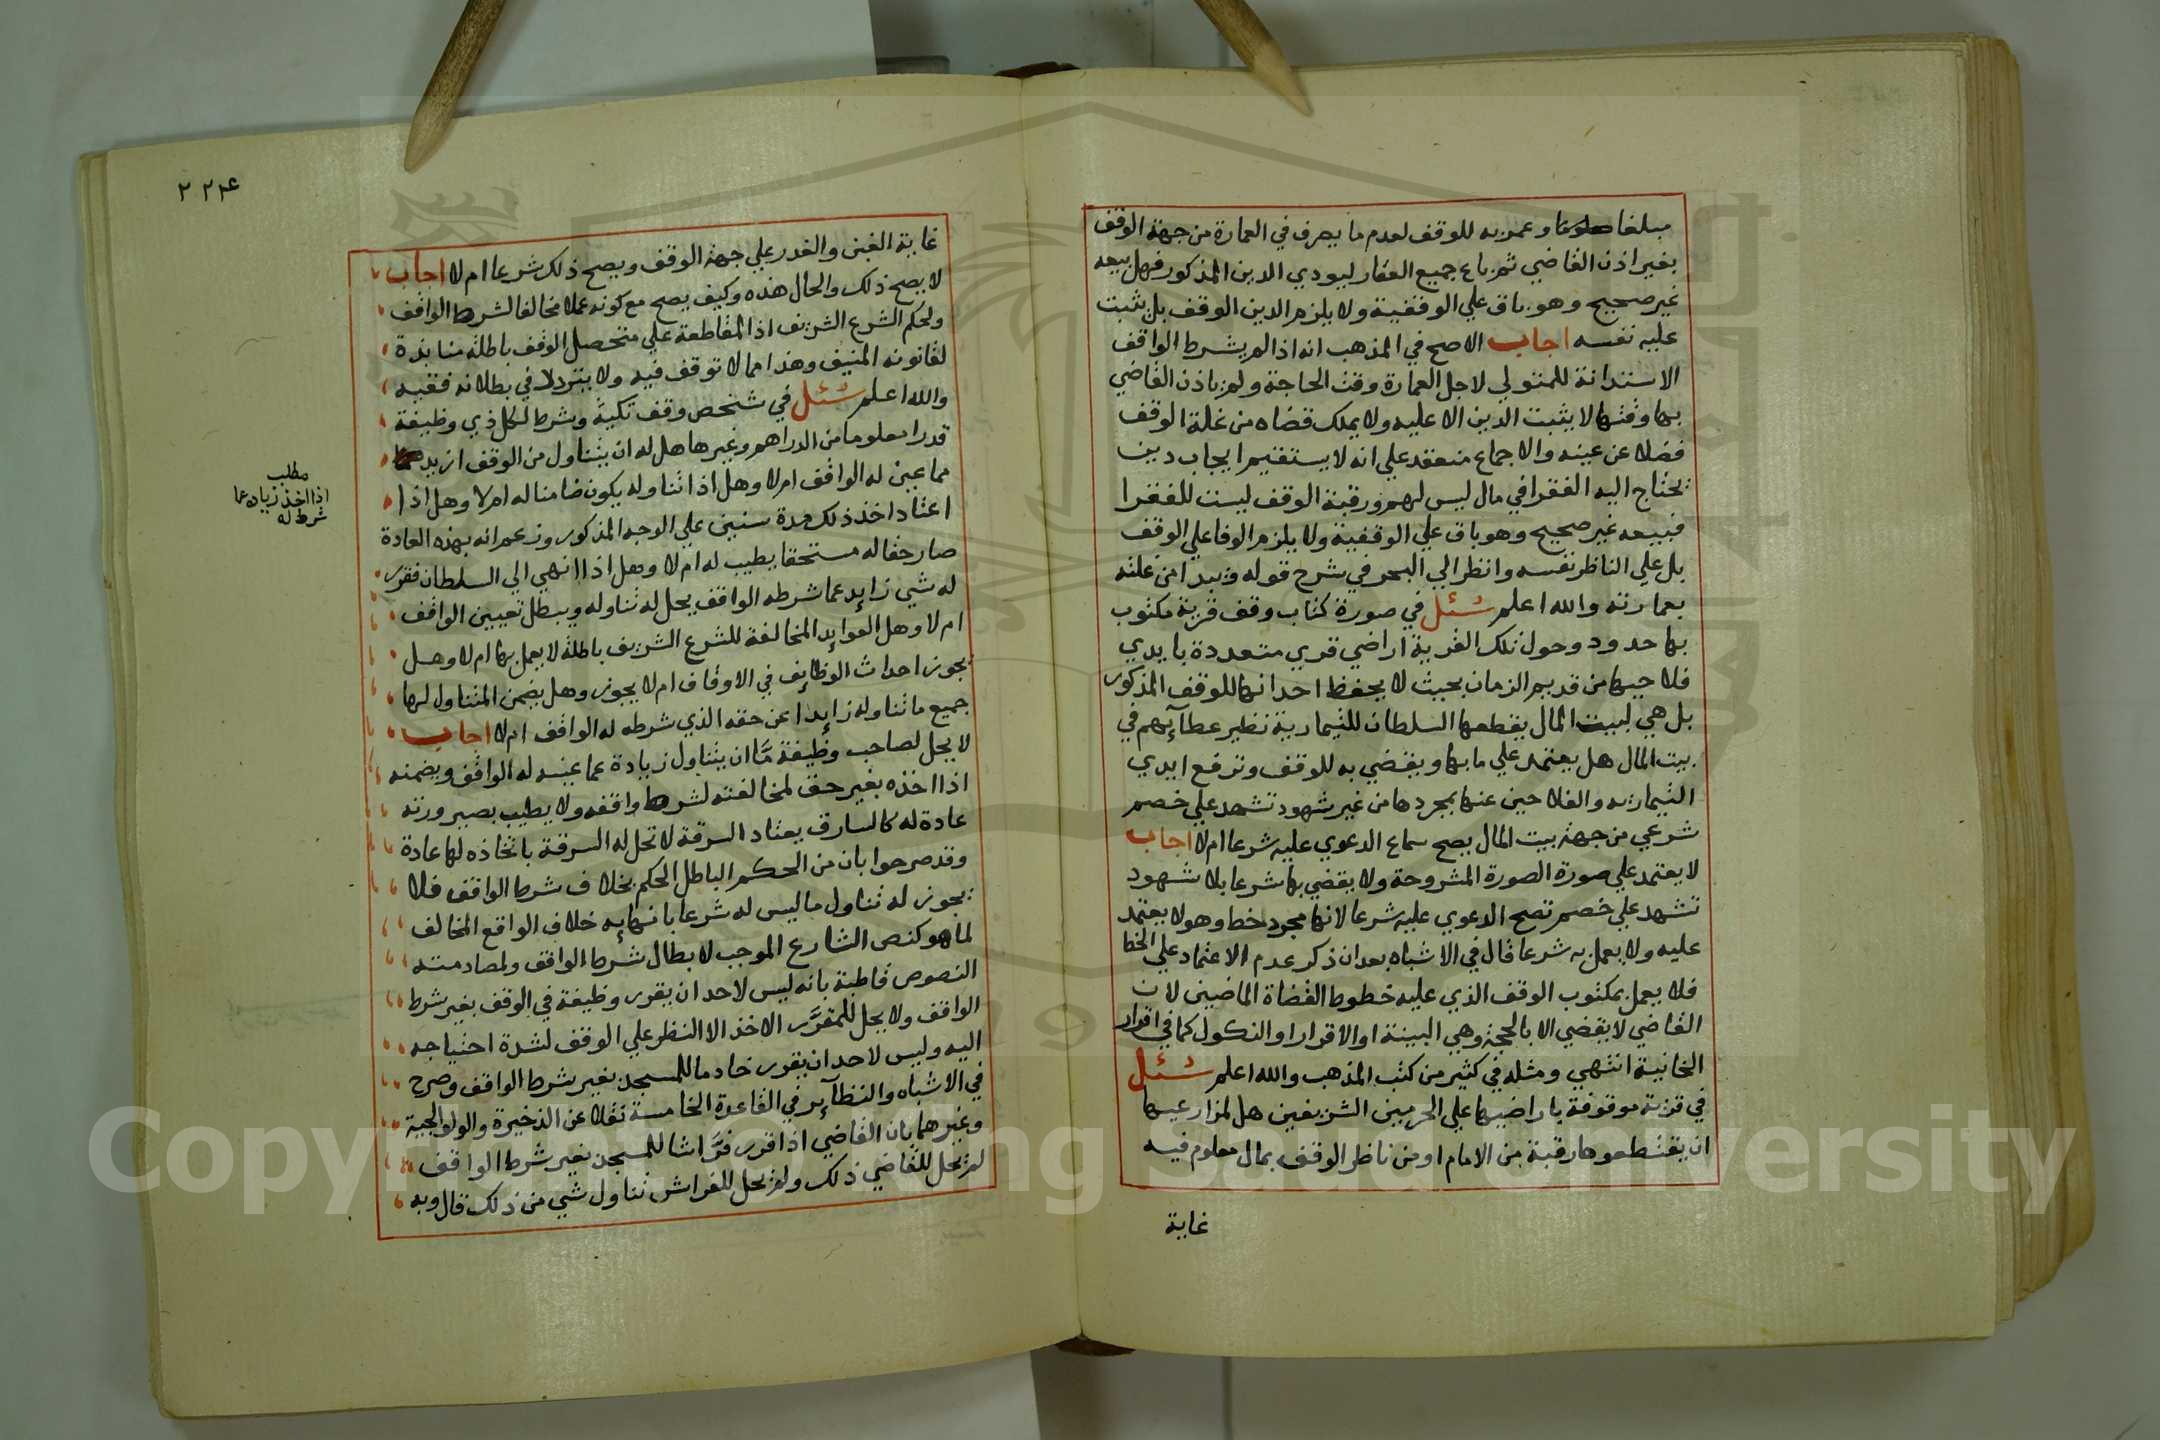 مبلغا معلوما وعمر به للوقف لعدم ما يصرف في العمارة من جهة الوقف
بغير اذن القاضي ثم باع جميع العقار ليودي الدين المذكور فهل بيعه
غير صحيح وهو باق علي الوقفية ولا يلزم الدين الوقف بل يثبت
عليه نفسه اجاب الاصح في المذهب انه اذا لم يشرط الواقف
الاستدانة للمتولي لاجل العمارة وقت الحاجة ولم ياذن القاضي
بها وقتها لا يثبت الدين الا عليه ولا يملك قضاه من غلة الوقف
فضلا عن عينه والاجماع منعقد علي انه لا يستقيم ايجاب دين
يحتاج اليه الفقرا في مال ليس لهم ورقبة الوقف ليست للفقرا
فبيعه غير صحيح وهو باق علي الوقفية ولا يلزم الوفا علي الوقف
بل علي الناظر نفسه وانظر الي البحر في شرح قوله ويبدا من غلته
بعمارته والله اعلم سئل في صورة كتاب وقف قرية مكتوب
بها حدود وحول تلك القرية اراضي قري متعددة بايدي
فلاحيها من قديم الزمان بحيث لا يحفظ احد انها للوقف المذكور
بل هي لبيت المال يقطعها السلطان للتيمارية نظير عطآئهم في
بيت المال هل يعتمد علي ما بها ويقضي به للوقف وترفع ايدي
التيماريه والفلاحين عنها بمجردها من غير شهود تشهد علي خصم
شرعي من جهة بيت المال يصح سماع الدعوي عليه شرعا ام لا اجاب
لا يعتمد علي صورة الصورة المشروحة ولا يقضي بها شرعا بلا شهود
تشهد علي خصم تصح الدعوي عليه شرعا لانها مجرد خط وهو لا يعتمد
عليه ولا يعمل به شرعا قال في الاشباه بعد ان ذكر عدم الاعتماد علي الخط
فلا يعمل بمكتوب الوقف الذي عليه خطوط القضاة الماضين لان
القاضي لا يقضي الا بالحجة وهي البينة او الاقرار او النكول كما في اقرار
الخانية انتهي ومثله في كثير من كتب المذهب والله اعلم سئل
في قرية موقوفة باراضيها علي الحرمين الشريفين هل لمزارعيها
ان يقتطعوها رقبة من الامام او من ناظر الوقف بمال معلوم فيه
غاية
٢٢٤
٢
غاية الغبن والغدر علي جهة الوقف ويصح ذلك شرعا ام لا اجاب
لا يصح ذلك والحال هذه وكيف يصح مع كونه عملا مخالفا لشرط الواقف
ولحكم الشرع الشريف اذ المقاطعة علي متحصل الوقف باطلة منابذة
لقانونه المنيف وهذا مما لا توقف فيه ولا يتردد في بطلانه فقيه
والله اعلم سئل في شخص وقف تكية وشرط لكل ذي وظيفة
قدرا معلوما من الدراهم وغيرها هل له ان يتناول من الوقف ازيد
مما عين له الواقف ام لا وهل اذا تناوله يكون ضامنا له ام لا وهل اذا
اعتاد اخذ ذلك مدة سنين علي الوجه المذكور وزعم انه بهذه العادة
صار حقا له مستحقا يطيب له ام لا وهل اذا انهي الي السلطان فقرر
له شي زايد عما شرطه الواقف يحل له تناوله ويبطل تعيين الواقف
ام لا وهل العوايد المخالفة للشرع الشريف باطلة لا يعمل بها ام لا وهل
يجوز احداث الوظايف في الاوقاف ام لا يجوز وهل يضمن المتناول لها
جميع ما تناوله زايدا عن حقه الذي شرطه له الواقف ام لا اجاب
لا يحل لصاحب وظيفة مّا ان يتناول زيادة عما عينه له الواقف ويضمنه
اذا اخذه بغير حق لمخالفته لشرط واقفه ولا يطيب بصيرورته
عادة له كالسارق يعتاد السرقة لا تحل له السرقة باتخاذه لها عادة
وقد صرحوا بان من الحكم الباطل الحكم بخلاف شرط الواقف فلا
يجوز له تناول ما ليس له شرعا بانهايه خلاف الواقع المخالف
لما هو كنص الشارع الموجب لابطال شرط الواقف ولمصادمته
النصوص قاطبة بانه ليس لاحد ان يقرر وظيفة في الوقف بغير شرط
الواقف ولا يحل للمقرَّر الاخذ الا النظر علي الوقف لشدة احتياجه
اليه وليس لاحد ان يقرر خادما للمسجد بغير شرط الواقف وصرح
في الاشباه والنظآير في القاعدة الخامسة نقلا عن الذخيرة والولوالجية
وغيرهما بان القاضي اذا قرر فرّاشا للمسجد بغير شرط الواقف
لم يحل للقاضي ذلك ولم يحل للفراش تناول شي من ذلك قال وبه
مطلب
اذا اخذ زياده عما
شرط له
Copyright © King Saud University